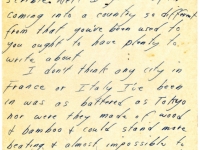 coming into a country so different
from that you've been used to
you ought to have plenty to
write about.
I don't think any city in
France or Italy I've been
in was as battered as Tokyo
nor were they made of wood
& bamboo & could stand more
beating & almost impossible to